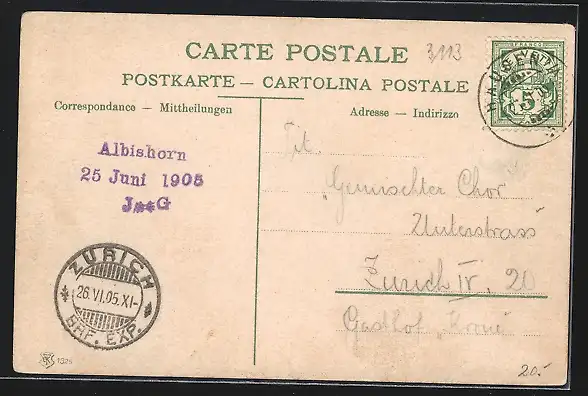 CARTE POSTALE
POSTKARTE — CARTOLINA POSTALE
Correspondance — Mittheilungen
Adresse — Indirizzo
3/113
FRANCO
HAUSEN
5
Albishorn
25 Juni 1905
J**G
Tit.
„Gemischter Chor
Unterstrass"
Zürich IV, 20
Gasthof „Krone"
ZÜRICH
26.VI.05.XI-
BRF. EXP.
20.-